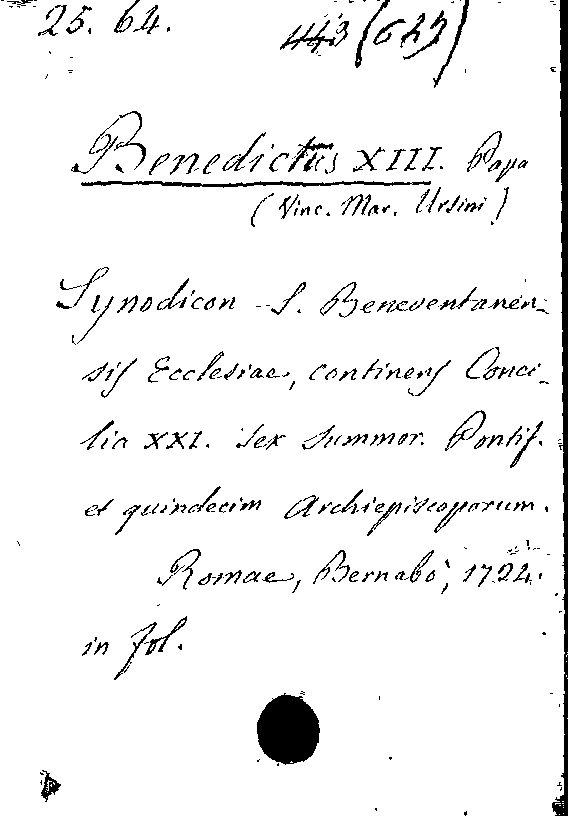 25. 64. 443 (629)
Benedictus XIII. Papa
(Vinc. Mar. Ursini)
Synodicon S. Beneventanen-
sis Ecclesiae, continens Conci-
lia XXI. Sex Summor. Pontif.
et quindecim Archiepiscoporum.
Romae, Bernabò, 1724.
in fol.